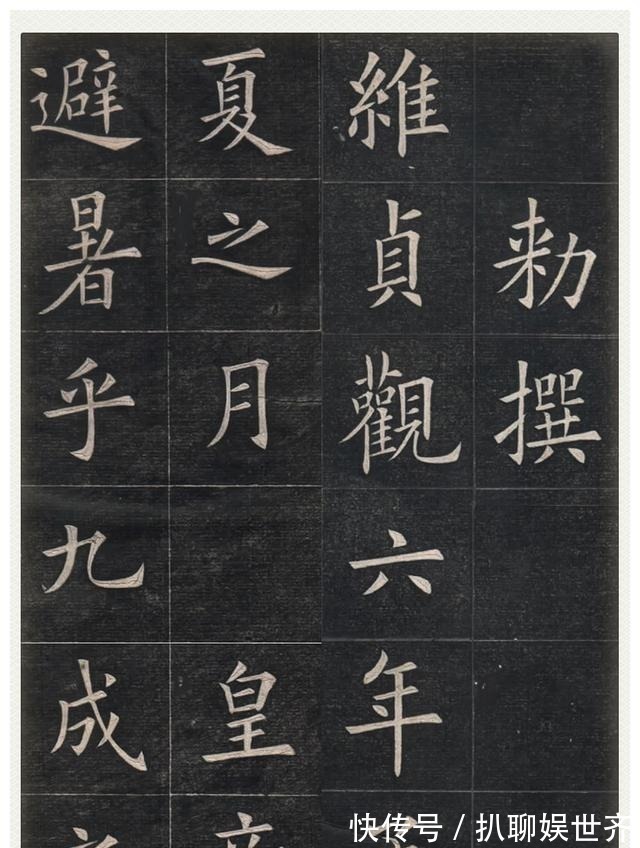 勑撰
維貞觀六年
夏之月 皇
避暑乎九成
快传号 / 扒聊娱世齐